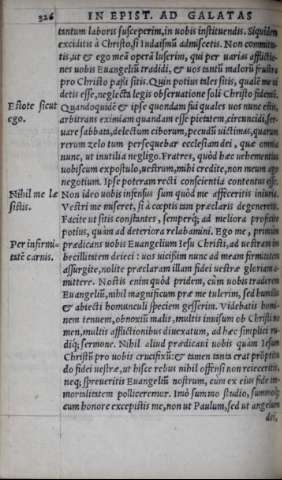 326 IN EPIST. AD GALATAS
tantum laboris susceperim, in uobis instituendis. Siquidem
excidistis à Christo, si Iudaismū admiscetis. Non committe-
tis, ut & ego meā operā luserim, qui per uarias afflictio-
nes uobis Euangeliū tradidi, & uos tantū malorū frustra
pro Christo passi sitis. Quin potius tales sitis, qualē me ui
detis esse, neglecta legis obseruatione soli Christo fidentē.
Estote sicut ego.
Quandoquidē & ipse quondam fui quales uos nunc estis,
arbitrans eximiam quandam esse pietatem, circuncidi, ser-
uare sabbata, delectum ciborum, pecudū uictimas, quarum
rerum zelo tum persequebar ecclesiam dei, quæ omnia
nunc, ut inutilia negligo. Fratres, quòd hæc uehementius
uobiscum expostulo, uestrum, mihi credite, non meum ago
negotium. Ipse poteram recti conscientia contentus esse.
Nihil me læ sistis.
Non ideo uobis infensus sum quòd me affeceritis iniuria.
Vestri me miseret, si à cœptis tam præclaris degeneretis.
Facite ut sitis constantes, semperq́; ad meliora profici­te
potius, quàm ad deteriora relabamini. Ego me, primùm
Per infirmi-tatē carnis.
prædicans uobis Euangelium Iesu Christi, ad uestram im
becillitatem deieci: uos uicissim nunc ad meam firmitatem
assurgite, nolite præclaram illam fidei uestræ gloriam o-
mittere. Nostis enim quòd pridem, cùm uobis traderem
Euangeliū, nihil magnificum præ me tulerim, sed humilis
& abiecti homunculi speciem gesserim. Videbatis homi-
nem tenuem, obnoxiū malis, multis inuisum ob Christi no
men, multis afflictionibus diuexatum, ad hæc simplici ru-
diq́; sermone. Nihil aliud prædicaui uobis quàm Iesum
Christū pro uobis crucifixū: & tamen tanta erat prōptitu
do fidei uestræ, ut hisce rebus nihil offensi non reieceritis,
neq; spreueritis Euangeliū nostrum, cùm ex eius fide im-
mortalitatem polliceremur. Imò summo studio, summoq́;
cum honore excepistis me, non ut Paulum, sed ut angelum
dei,